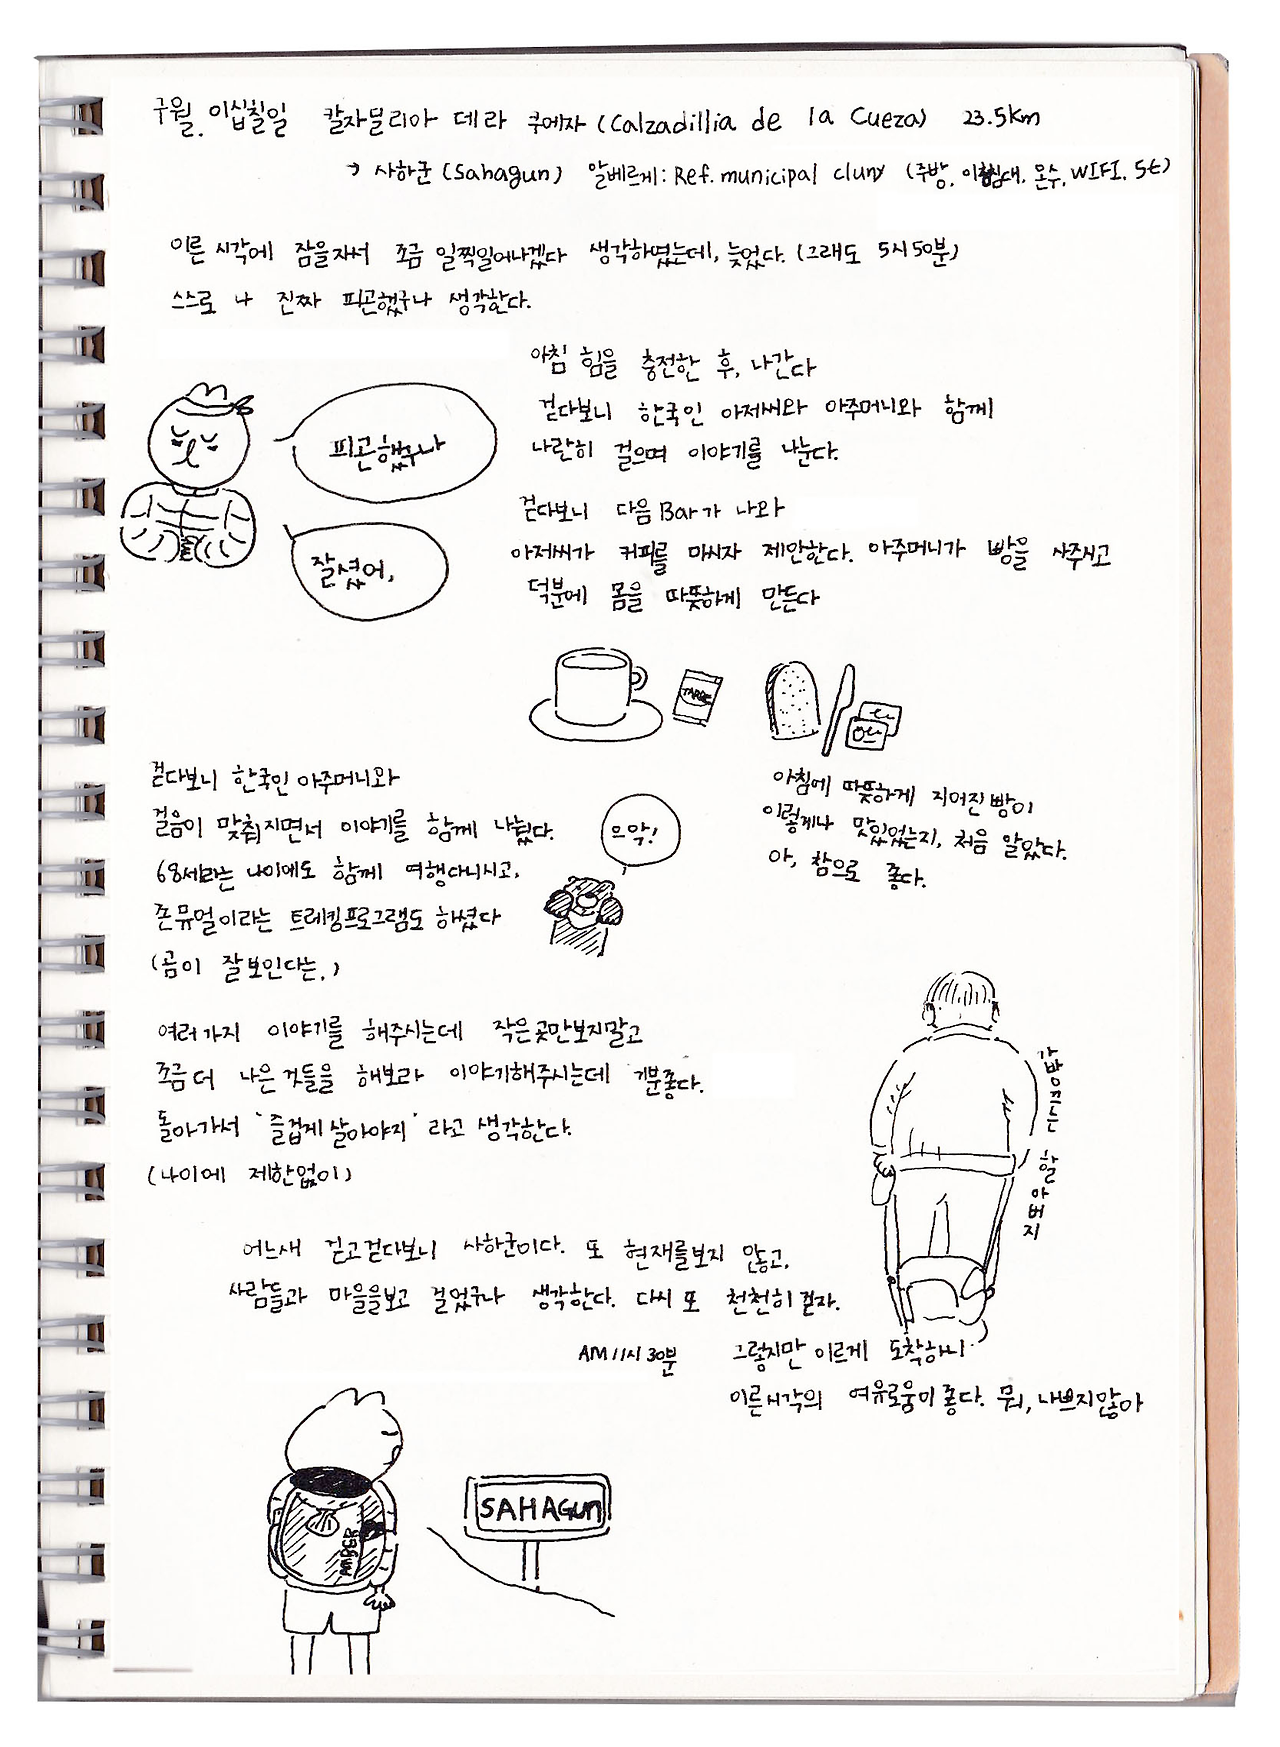 구월. 이십칠일 칼자딜리아 데라 쿠에자 (Calzadillia de la Cueza) 23.5km
→ 사하군 (Sahagun) 알베르게: Ref. municipal cluny (주방, 이층침대, 온수, WIFI, 5€)
이른 시각에 잠을자서 조금 일찍일어나겠다 생각하였는데, 늦었다. (그래도 5시 50분)
스스로 나 진짜 피곤했구나 생각한다.
아침 힘을 충전한 후, 나간다
걷다보니 한국인 아저씨와 아주머니와 함께
나란히 걸으며 이야기를 나눈다.
피곤했구나
잘셨어,
걷다보니 다음 Bar가 나와
아저씨가 커피를 마시자 제안한다. 아주머니가 빵을 사주시고
덕분에 몸을 따뜻하게 만든다
걷다보니 한국인 아주머니와
걸음이 맞춰지면서 이야기를 함께 나눴다.
68세라는 나이에도 함께 여행다니시고,
존뮤얼이라는 트레킹프로그램도 하셨다
(곰이 잘보인다는.)
으악!
아침에 따뜻하게 지어진빵이
이렇게나 맛있었는지, 처음 알았다.
아, 참으로 좋다.
여러가지 이야기를 해주시는데 작은곳만보지말고
조금더 나은것들을 해보라 이야기해주시는데 기분좋다.
돌아가서 '즐겁게살아야지' 라고 생각한다.
(나이에 제한없이)
가방끄는 할아버지
어느새 걷고걷다보니 사하군이다. 또 현재를보지 않고,
사람들과 마을을보고 걸었구나 생각한다. 다시 또 천천히걷자.
AM 11시 30분 그렇지만 이르게 도착하니
이른시각의 여유로움이좋다. 뭐, 나쁘지않아
SAHAGUN